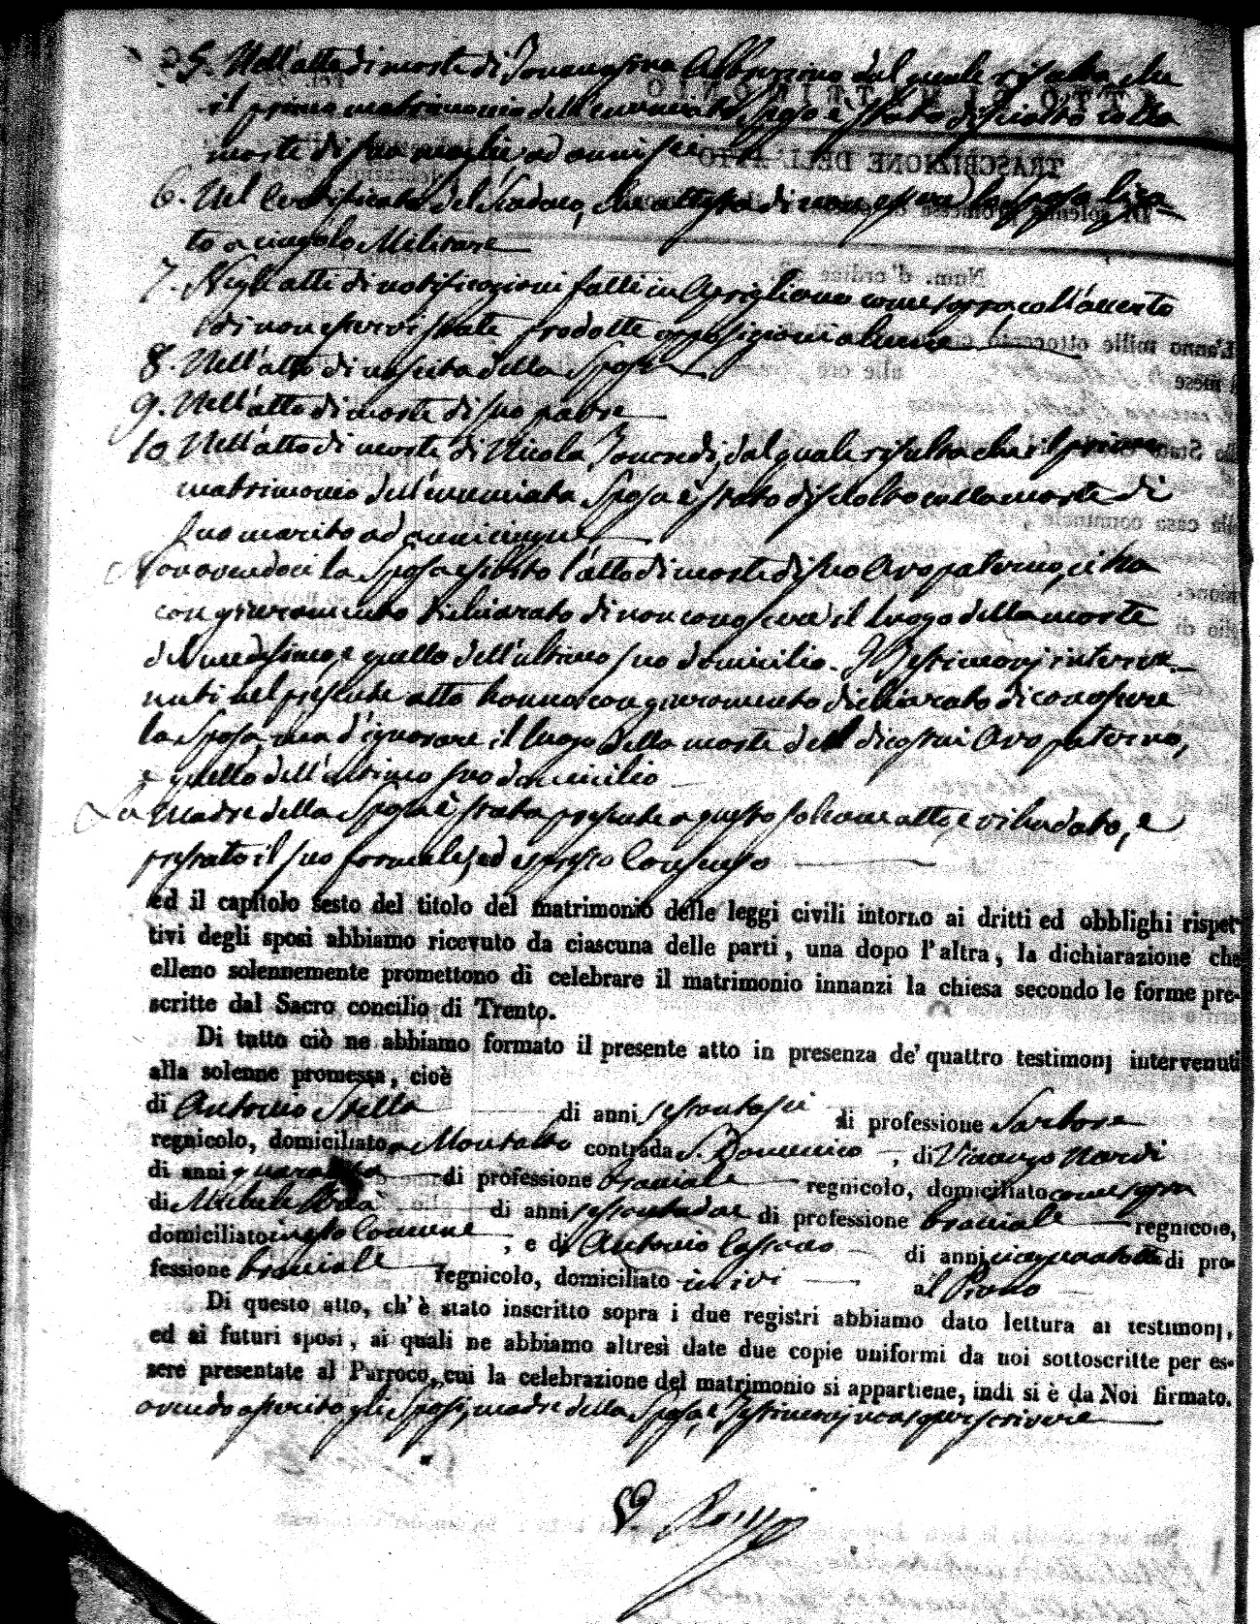 5. Nell'atto di morte di Abbruzzino dal quale risulta che
il primo matrimonio dell'enunciato Sposo è stato disciolto colla
morte di sua moglie ad anni sei
6. Nel Certificato del Sindaco, che attesta di non essere lo Sposo liga-
to a cingolo Militare
7. Negli atti di notificazioni fatti in come sopra coll'
di non esservi state prodotte opposizioni alcune
8. Nell'atto di nascita della Sposa
9. Nell'atto di morte di suo padre
10 Nell'atto di morte di Nicola dal quale risulta che il primo
matrimonio dell'enunciata Sposa è stato disciolto colla morte di
suo marito ad anni cinque
Non avendoci la Sposa esibito l'atto di morte di suo Avo paterno, ci ha
con giuramento dichiarato di non conoscere il luogo della morte
del medesimo, e quello dell'ultimo suo domicilio. I Testimonj interve-
nuti nel presente atto hanno con giuramento dichiarato di conoscere
la Sposa, ma d'ignorare il luogo della morte del di costui Avo paterno,
e quello dell'ultimo suo domicilio
La Madre della Sposa è stata presente a questo solenne atto, e vi ha dato, e
prestato il suo formale, ed espresso Consenso
ed il capitolo sesto del titolo del matrimonio delle leggi civili intorno ai dritti ed obblighi rispet-
tivi degli sposi abbiamo ricevuto da ciascuna delle parti, una dopo l'altra, la dichiarazione che
elleno solennemente promettono di celebrare il matrimonio innanzi la chiesa secondo le forme pre-
scritte dal Sacro concilio di Trento.
Di tutto ciò ne abbiamo formato il presente atto in presenza de' quattro testimonj intervenuti
alla solenne promessa, cioè
di Antonio Stella di anni sessantasei di professione Sartore
regnicolo, domiciliato a Montalto contrada S. Domenico, di Vicenzo Nardi
di anni quaranta di professione bracciale regnicolo, domiciliato come sopra
di Michele di anni sessantadue di professione bracciale regnicolo,
domiciliato in questo Comune, e di Antonio di anni cinquantotto di pro-
fessione bracciale regnicolo, domiciliato in ivi al Piano
Di questo atto, ch'è stato inscritto sopra i due registri abbiamo dato lettura ai testimonj,
ed ai futuri sposi, ai quali ne abbiamo altresì date due copie uniformi da noi sottoscritte per es-
sere presentate al Parroco, cui la celebrazione del matrimonio si appartiene, indi si è da Noi firmato.
avendo asserito gli Sposi, madre della Sposa, e Testimonj non saper scrivere